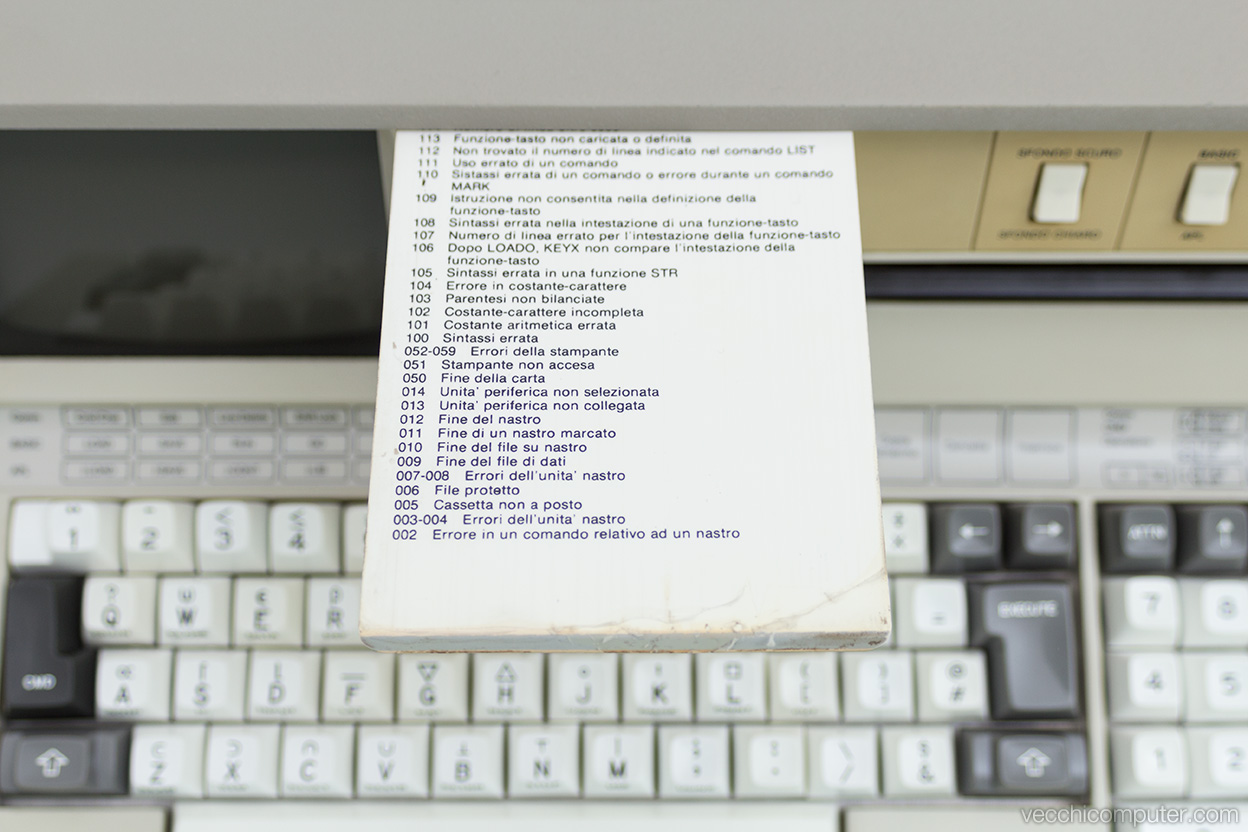 113 Funzione-tasto non caricata o definita
112 Non trovato il numero di linea indicato nel comando LIST
111 Uso errato di un comando
110 Sistassi errata di un comando o errore durante un comando
MARK
109 Istruzione non consentita nella definizione della
funzione-tasto
108 Sintassi errata nella intestazione di una funzione-tasto
107 Numero di linea errato per l'intestazione della funzione-tasto
106 Dopo LOADO, KEYX non compare l'intestazione della
funzione-tasto
105 Sintassi errata in una funzione STR
104 Errore in costante-carattere
103 Parentesi non bilanciate
102 Costante-carattere incompleta
101 Costante aritmetica errata
100 Sintassi errata
052-059 Errori della stampante
051 Stampante non accesa
050 Fine della carta
014 Unita' periferica non selezionata
013 Unita' periferica non collegata
012 Fine del nastro
011 Fine di un nastro marcato
010 Fine del file su nastro
009 Fine del file di dati
007-008 Errori dell'unita' nastro
006 File protetto
005 Cassetta non a posto
003-004 Errori dell'unita' nastro
002 Errore in un comando relativo ad un nastro
SFONDO SCURO
SFONDO CHIARO
BASIC
APL
1 2 3 4
ATTN
Q W E R
EXECUTE
7 8
CMD
A S D F G H J K L
#
4 5
Z X C V B N M
&
1 2
vecchicomputer.com